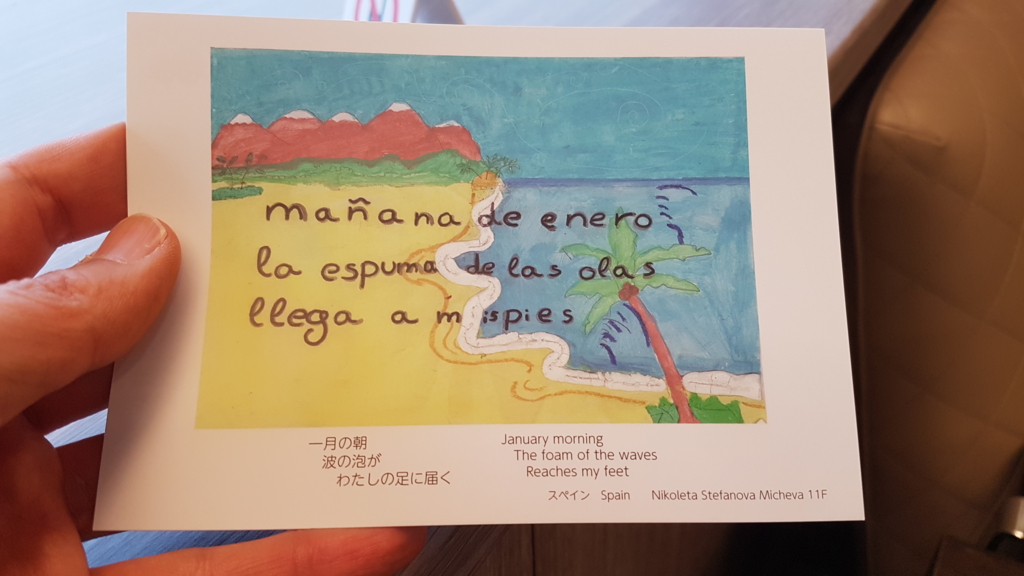 mañana de enero
la espuma de las olas
llega a mis pies
一月の朝
波の泡が
わたしの足に届く
January morning
The foam of the waves
Reaches my feet
スペイン Spain Nikoleta Stefanova Micheva 11F